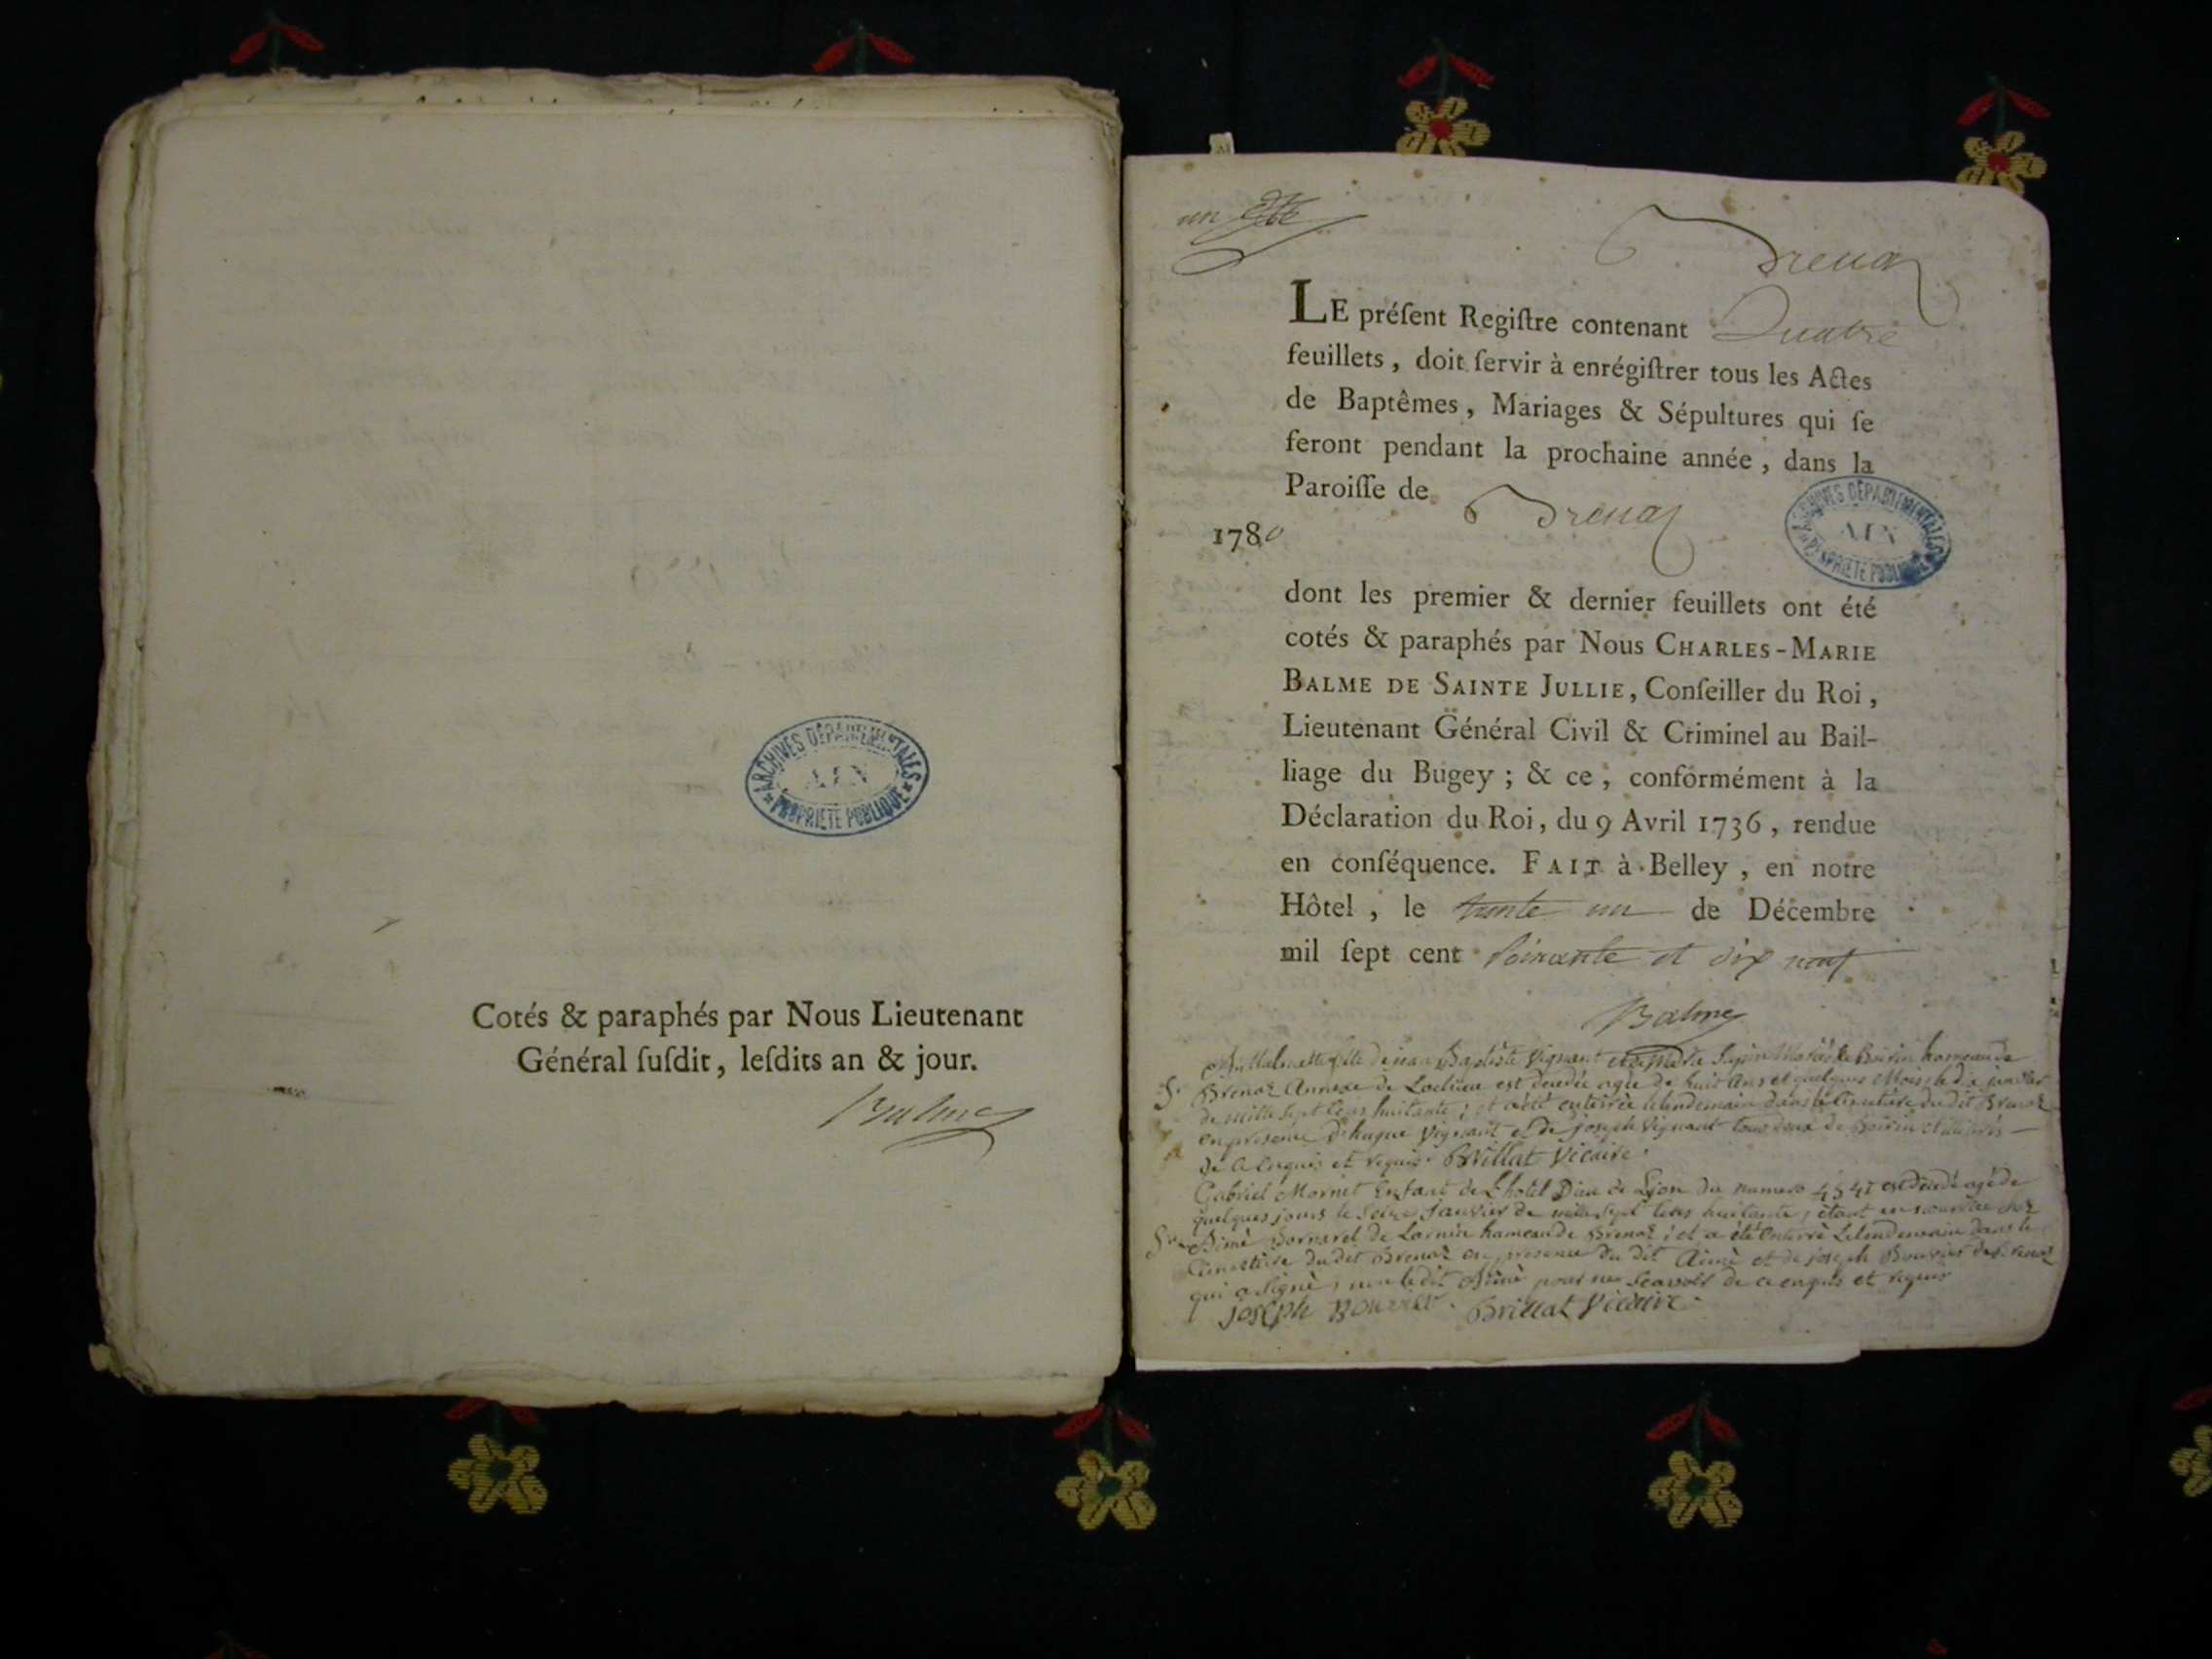 Cotés & paraphés par Nous Lieutenant
Général ſuſdit, leſdits an & jour.
Balme
ARCHIVES DÉPARTEMENTALES
AIN
PROPRIETE PUBLIQUE
un
Brenaz
LE préſent Regiſtre contenant Quatre
feuillets, doit ſervir à enrégiſtrer tous les Actes
de Baptêmes, Mariages & Sépultures qui ſe
feront pendant la prochaine année, dans la
Paroiſſe de Brenaz
1780
ARCHIVES DÉPARTEMENTALES
AIN
PROPRIETE PUBLIQUE
dont les premier & dernier feuillets ont été
cotés & paraphés par Nous CHARLES-MARIE
BALME DE SAINTE JULLIE, Conſeiller du Roi,
Lieutenant Général Civil & Criminel au Bail-
liage du Bugey; & ce, conformément à la
Déclaration du Roi, du 9 Avril 1736, rendue
en conſéquence. FAIT à Belley, en notre
Hôtel, le trente un de Décembre
mil ſept cent Soixante et dix neuf
Balme
fille de jean Baptiste Vignant hameau de
Brenaz Annexe de Lochieu est decedée agée de huit Ans et quelques Mois le dix janvier
de mille Sept Cens huitante; et a été enterrée le lendemain dans le Cimetiere du dit Brenaz
en presence d'hugue Vignant et de joseph Vignant tous deux de
de ce enquis et requis. Brillat Vicaire.
Gabriel Mornet Enfant de L'hotel Dieu de Lyon du numero 4541 est decedé agé de
quelques jours le Seize Janvier de mille Sept Cens huitante, étant en nourrice chez
Aimé Bornarel de hameau de Brenaz; et a été Enterré Le lendemain dans le
Cimetiere du dit Brenaz en presence du dit Aimé et de joseph Bouvier de Brenaz
qui a signé, non le dit Aimé pour ne Scavoir de ce enquis et requis
joseph Bouvier. Brillat Vicaire.